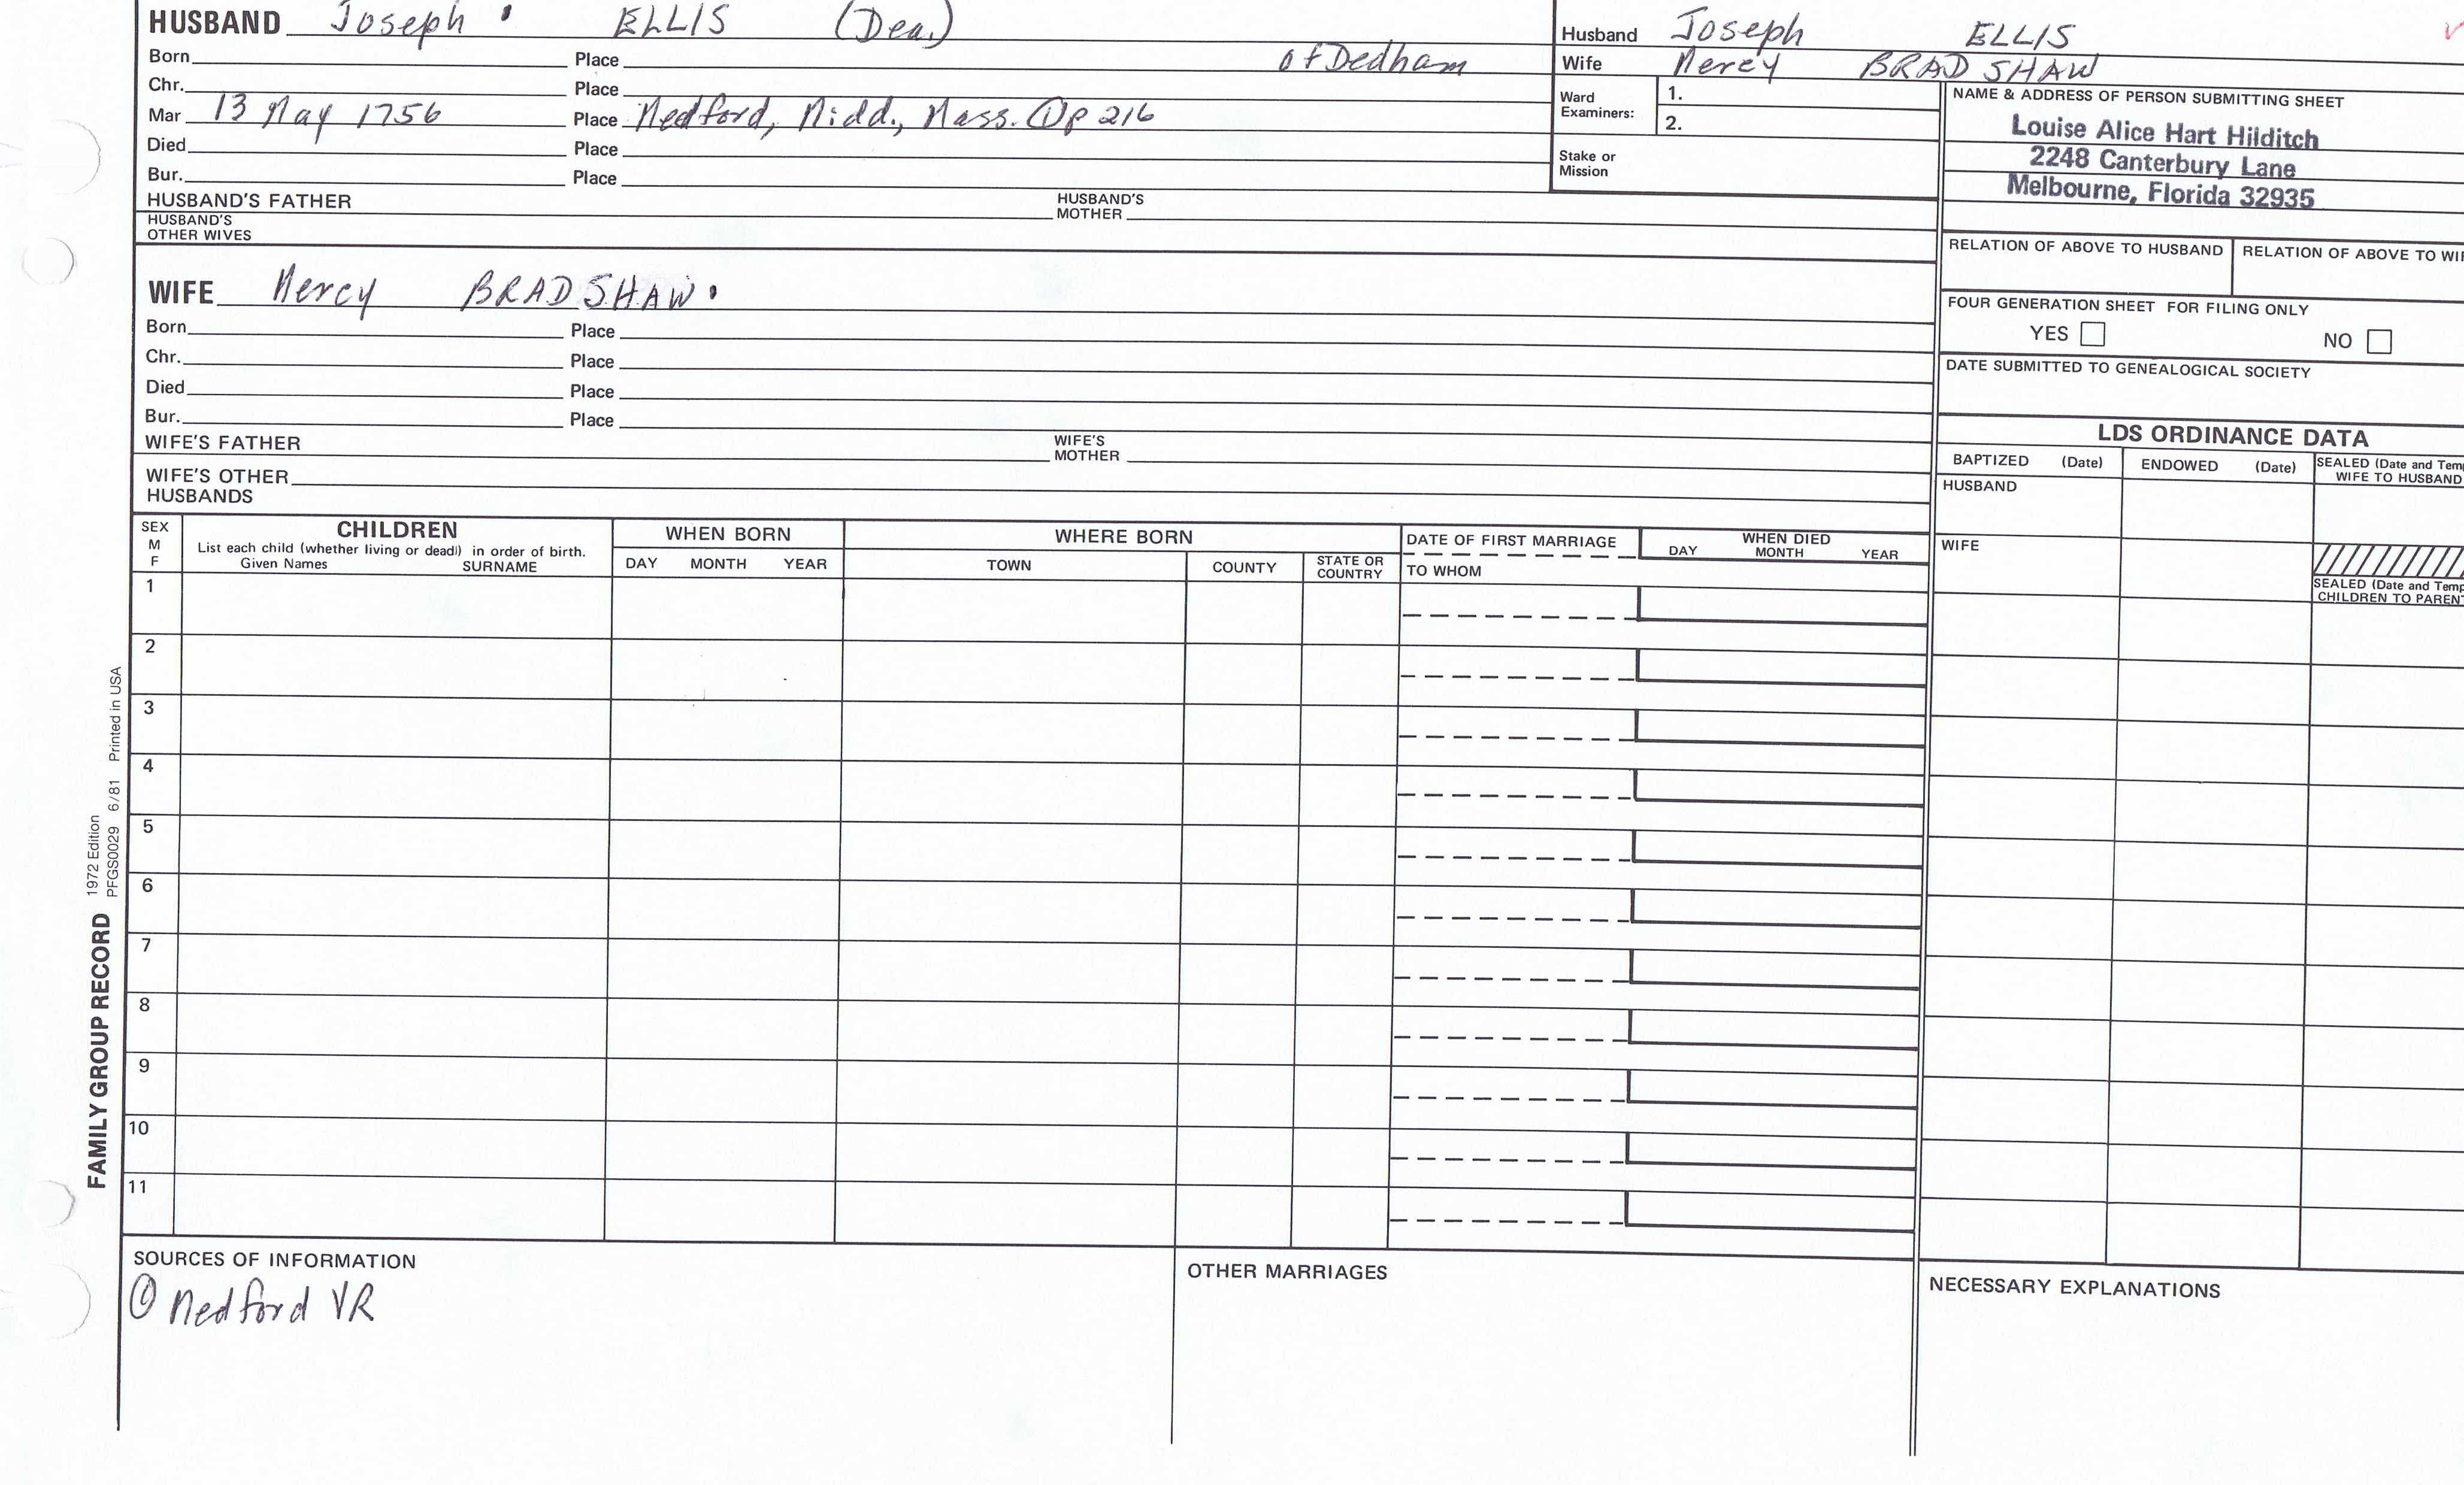 HUSBAND Joseph ELLIS (Dea.)
Born Place of Dedham
Chr. Place
Mar 13 May 1756 Place Medford, Midd., Mass. ① p 216
Died Place
Bur. Place
HUSBAND'S FATHER HUSBAND'S MOTHER
HUSBAND'S OTHER WIVES
Husband Joseph ELLIS
Wife Mercy BRADSHAW
Ward Examiners: 1.
2.
Stake or Mission
NAME & ADDRESS OF PERSON SUBMITTING SHEET
Louise Alice Hart Hilditch
2248 Canterbury Lane
Melbourne, Florida 32935
RELATION OF ABOVE TO HUSBAND RELATION OF ABOVE TO WIF
FOUR GENERATION SHEET FOR FILING ONLY
YES NO
DATE SUBMITTED TO GENEALOGICAL SOCIETY
WIFE Mercy BRADSHAW
Born Place
Chr. Place
Died Place
Bur. Place
WIFE'S FATHER WIFE'S MOTHER
WIFE'S OTHER HUSBANDS
LDS ORDINANCE DATA
BAPTIZED (Date) ENDOWED (Date) SEALED (Date and Temp
WIFE TO HUSBAND
HUSBAND
WIFE
SEALED (Date and Temp
CHILDREN TO PARENT
SEX
M
F
CHILDREN
List each child (whether living or dead) in order of birth.
Given Names SURNAME
WHEN BORN
DAY MONTH YEAR
WHERE BORN
TOWN COUNTY STATE OR COUNTRY
DATE OF FIRST MARRIAGE
TO WHOM
WHEN DIED
DAY MONTH YEAR
1
2
3
4
5
6
7
8
9
10
11
FAMILY GROUP RECORD
1972 Edition
PFGS0029 6/81 Printed in USA
SOURCES OF INFORMATION
① Medford VR
OTHER MARRIAGES
NECESSARY EXPLANATIONS